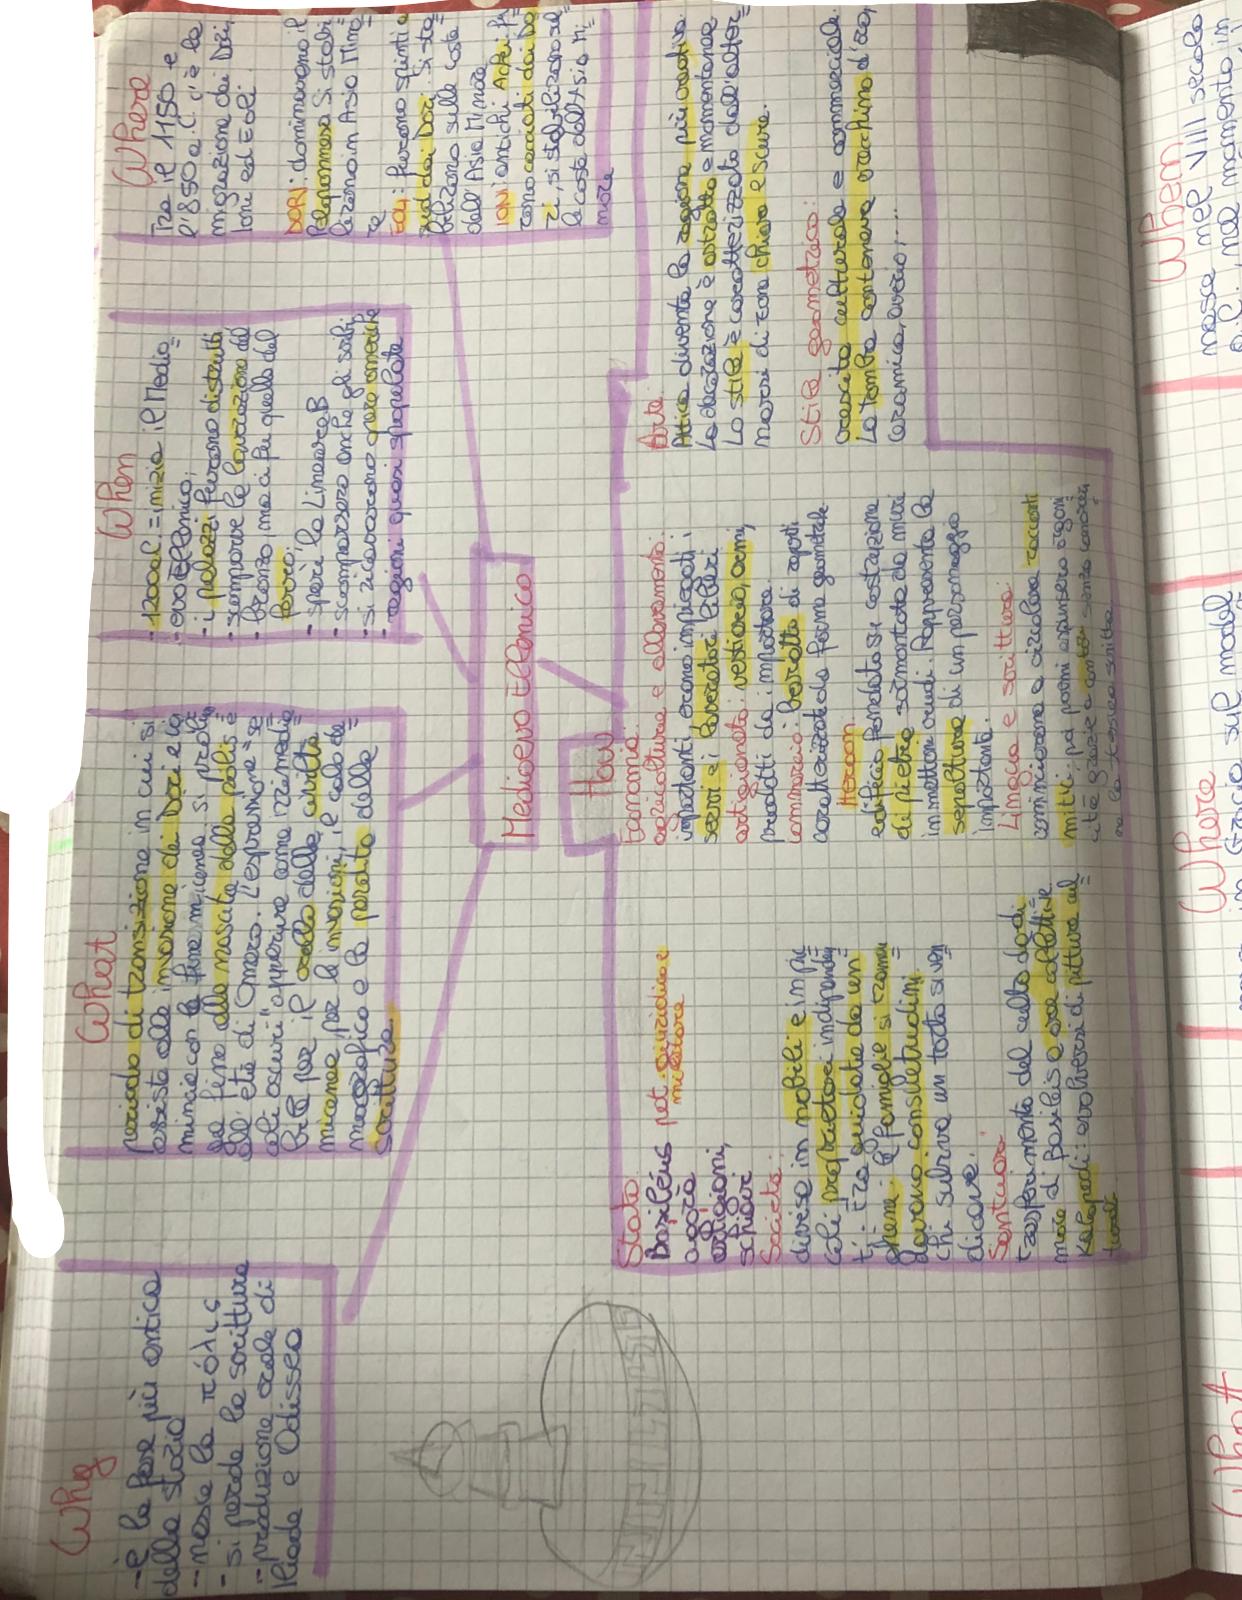 Why
- è la fase più antica
della storia
- nasce la πόλις
- si perde la scrittura
- produzione orale di
Iliade e Odissea
What
periodo di transizione in cui si
assiste alle invasione dei Dori e co
mincia con la fine micenea si protra
e fino alla nascita della polis e
all'età di Omero. L'espressione "se
coli oscuri" appare come
per il crollo della civiltà
micenea, per le invasioni, il calo de
mografico e la perdita della
scrittura
When
- 1200 a.C. = inizia il Medio
evo Ellenico;
- i palazzi furono distrutti
- scomparve la lavorazione del
bronzo, ma ci fu quella del
ferro;
- sparì la Lineare B
- scomparsero anche gli scribi
- si
- regioni quasi spopolate
Where
Tra il 1150 e
l'850 a.C. c'è la
migrazione dei Dori,
Ioni ed Eoli.
DORI: dominarono il
Peloponneso. Si stabi
lirono in Asia Mino
re
EOLI: furono spinti a
sud dai Dori. Si sta
bilirono sulle coste
dell'Asia Minore
IONI: antichi Achei fu
rono cacciati dai Do
ri, si stabilizzarono sul
le coste dell'Asia Mi
nore
Medioevo Ellenico
How
Stato
Basiléus pot. giuridico e
militare
agorà
artigiani,
schiavi
Società:
divisa in nobili e in pic
coli proprietari indipenden
ti. Era guidata da un
ghene. Le famiglie si
davano consuetudini,
chi subiva un torto si ven
dicava.
Santuari:
trasferimento del culto dalla di
mora di basileis a aree collettive
Kalapodi:
Economia
agricoltura e allevamento:
importanti, erano impiegati i
servi e i lavoratori liberi
artigianato: vestiario, armi,
prodotti da importare
commercio: baratto di oggetti
caratterizzati da forme geometriche
Heroon
edificio fondato su costruzione
di pietra sormontato da muri
in mattoni crudi. Rappresenta la
sepoltura di un personaggio
importante.
Lingua e scrittura:
cominciarono a circolare racconti
mitici
Arte:
Attica diventa la regione più creativa.
La decorazione è astratta e momentanea
Lo stile è caratterizzato dall'alter
narsi di zone chiare e scure.
Stile geometrico:
crescita culturale e commerciale.
La tomba conteneva orecchino d'oro,
ceramica, avorio,.....
What
Where
When
nasce nel VIII secolo
a.C., nel momento in
sul model